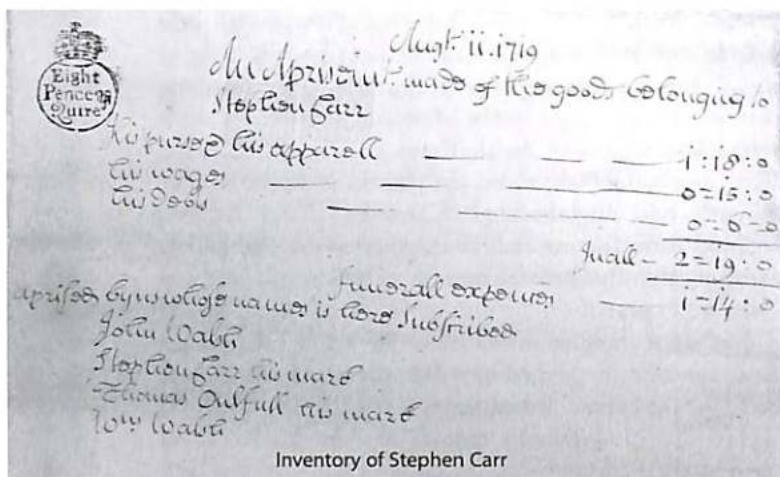 Eight
Pence
Quire
Augt. 11. 1719
An Aprisment made of the goods belonging to
Stephen Carr
his purse & his apparell — — — 1:18:0
his wages — — — 0=15:0
his Debs — — 0=6=0
Inall — 2=19:0
Funerall expences — 1=14:0
aprised by us whose names is here Subscribed
John Wabh
Stephen Carr his mark
Thomas his mark
Wm Wabh
Inventory of Stephen Carr